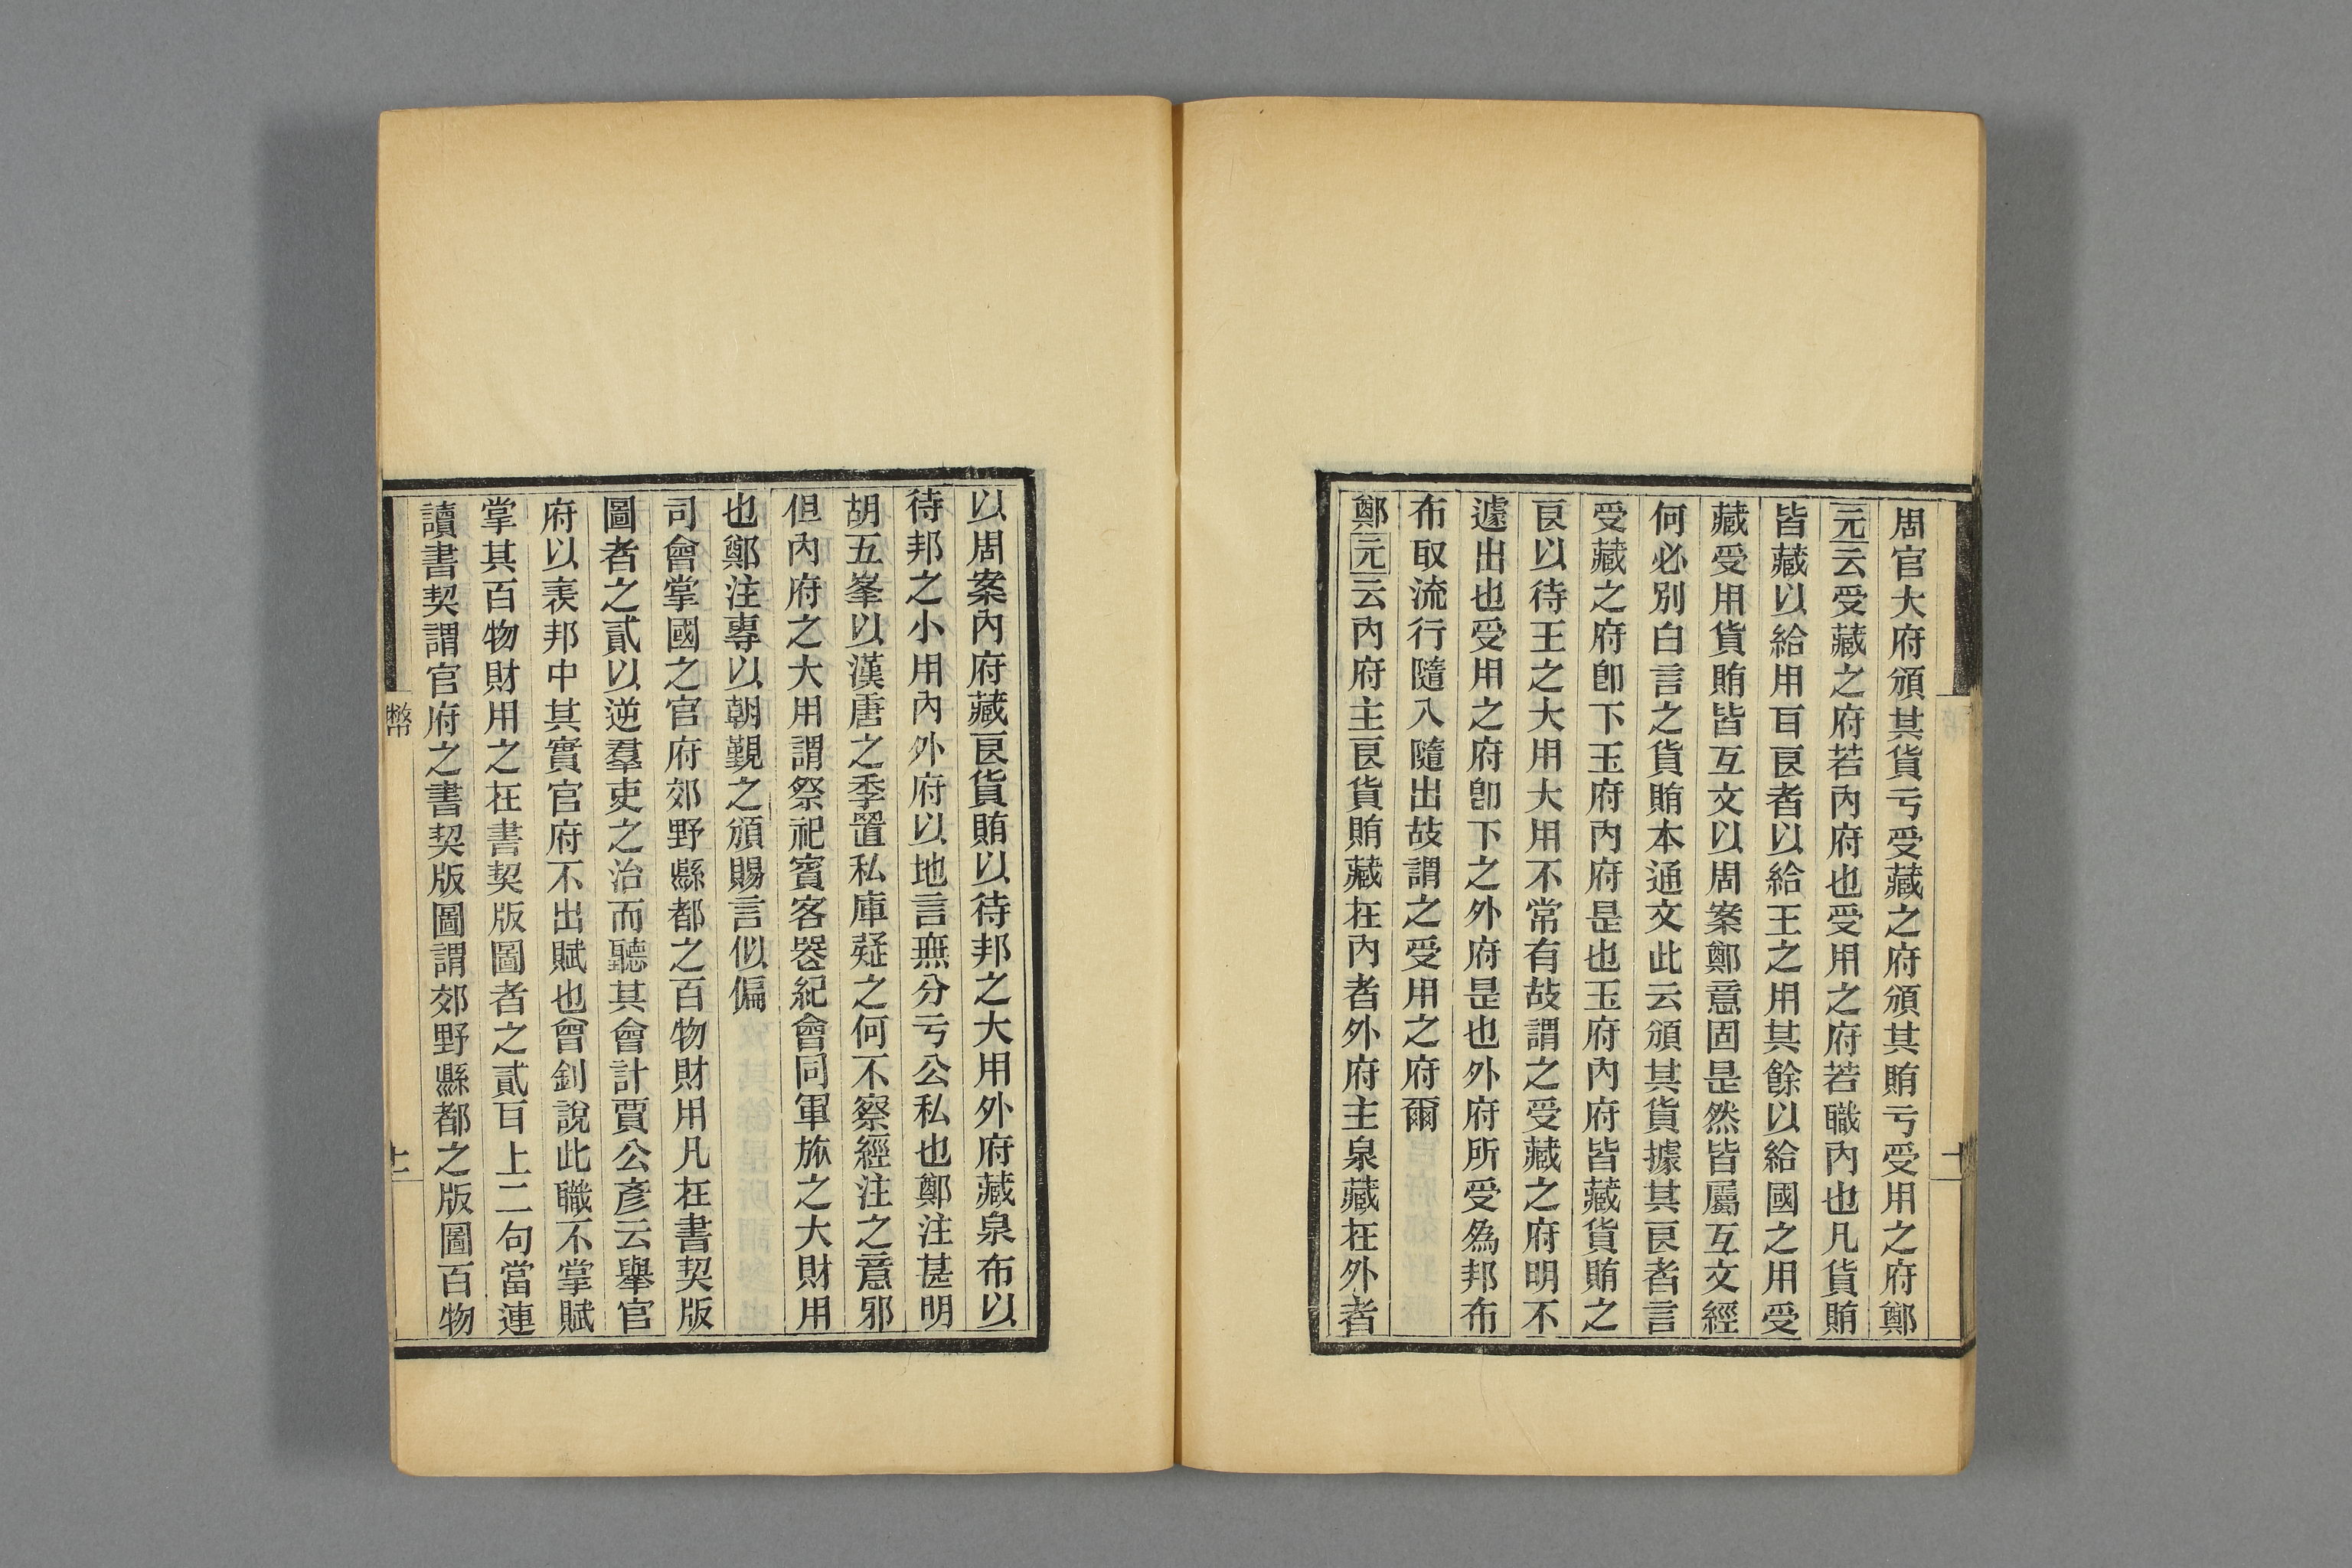 周官大府頒其貨亏受藏之府頒其賄亏受用之府鄭
元云受藏之府若內府也受用之府若職內也凡貨賄
皆藏以給用百㫪者以給王之用其餘以給國之用受
藏受用貨賄皆互文以周案鄭意固是然皆屬互文經
何必別白言之貨賄本通文此云頒其貨據其㫪者言
受藏之府卽下玉府內府是也玉府內府皆藏貨賄之
㫪以待王之大用大用不常有故謂之受藏之府明不
遽出也受用之府卽下之外府是也外府所受為邦布
布取流行隨入隨出故謂之受用之府爾
鄭元云內府主㫪貨賄藏在內者外府主泉藏在外者
以周案內府藏㫪貨賄以待邦之大用外府藏泉布以
待邦之小用內外府以地言無分亏公私也鄭注甚明
胡五峯以漢唐之季置私庫疑之何不察經注之意邪
但內府之大用謂祭祀賓客器紀會同軍旅之大財用
也鄭注專以朝覲之頒賜言似偏
司會掌國之官府郊野縣都之百物財用凡在書契版
圖者之貳以逆羣吏之治而聽其會計賈公彥云舉官
府以表邦中其實官府不出賦也曾釗說此職不掌賦
掌其百物財用之在書契版圖者之貳百上二句當連
讀書契謂官府之書契版圖謂郊野縣都之版圖百物
幣
十一